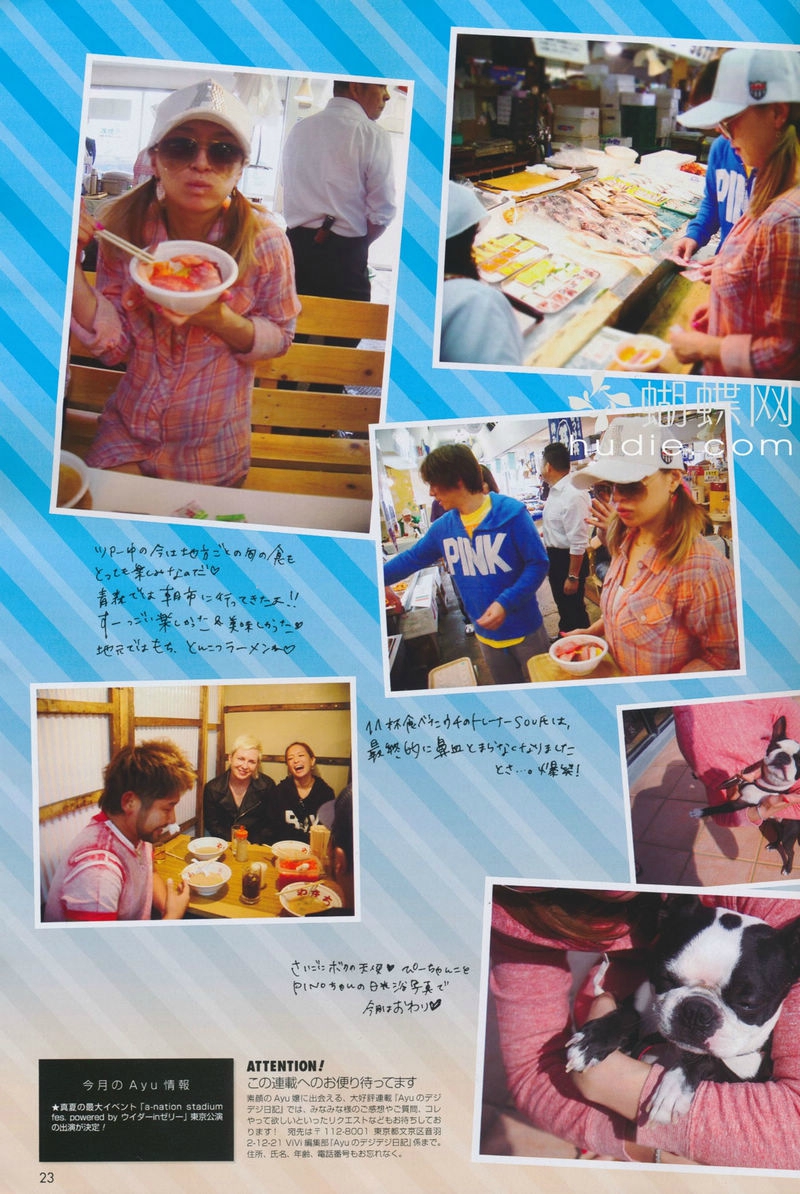 蝴蝶网
hudie.com
PINK
PINK
ツアー中の今は地方ごとの旬の食も
とっても楽しみなのだ♡
青森では朝市に行ってきたよ!!
すーっごい楽しかった&美味しかった♡
地元ではもち、とんこつラーメンね♡
11杯食べたウチのトレーナーSOUKは、
最終的に鼻血とまらなくなりました
とさ…。爆笑!
さいごにボクの天使♡ ぴーちゃんこと
PINOちゃんの日光浴写真で
今月はおわり♡
今月のAyu情報
★真夏の最大イベント「a-nation stadium
fes. powered by ウイダーinゼリー」東京公演
の出演が決定!
ATTENTION!
この連載へのお便り待ってます
素顔のAyu嬢に出会える、大好評連載「Ayuのデジ
デジ日記」では、みなみな様のご感想やご質問、コレ
やって欲しいといったリクエストなどもお待ちしてお
ります! 宛先は〒112-8001 東京都文京区音羽
2-12-21 ViVi編集部「Ayuのデジデジ日記」係まで。
住所、氏名、年齢、電話番号もお忘れなく。
23